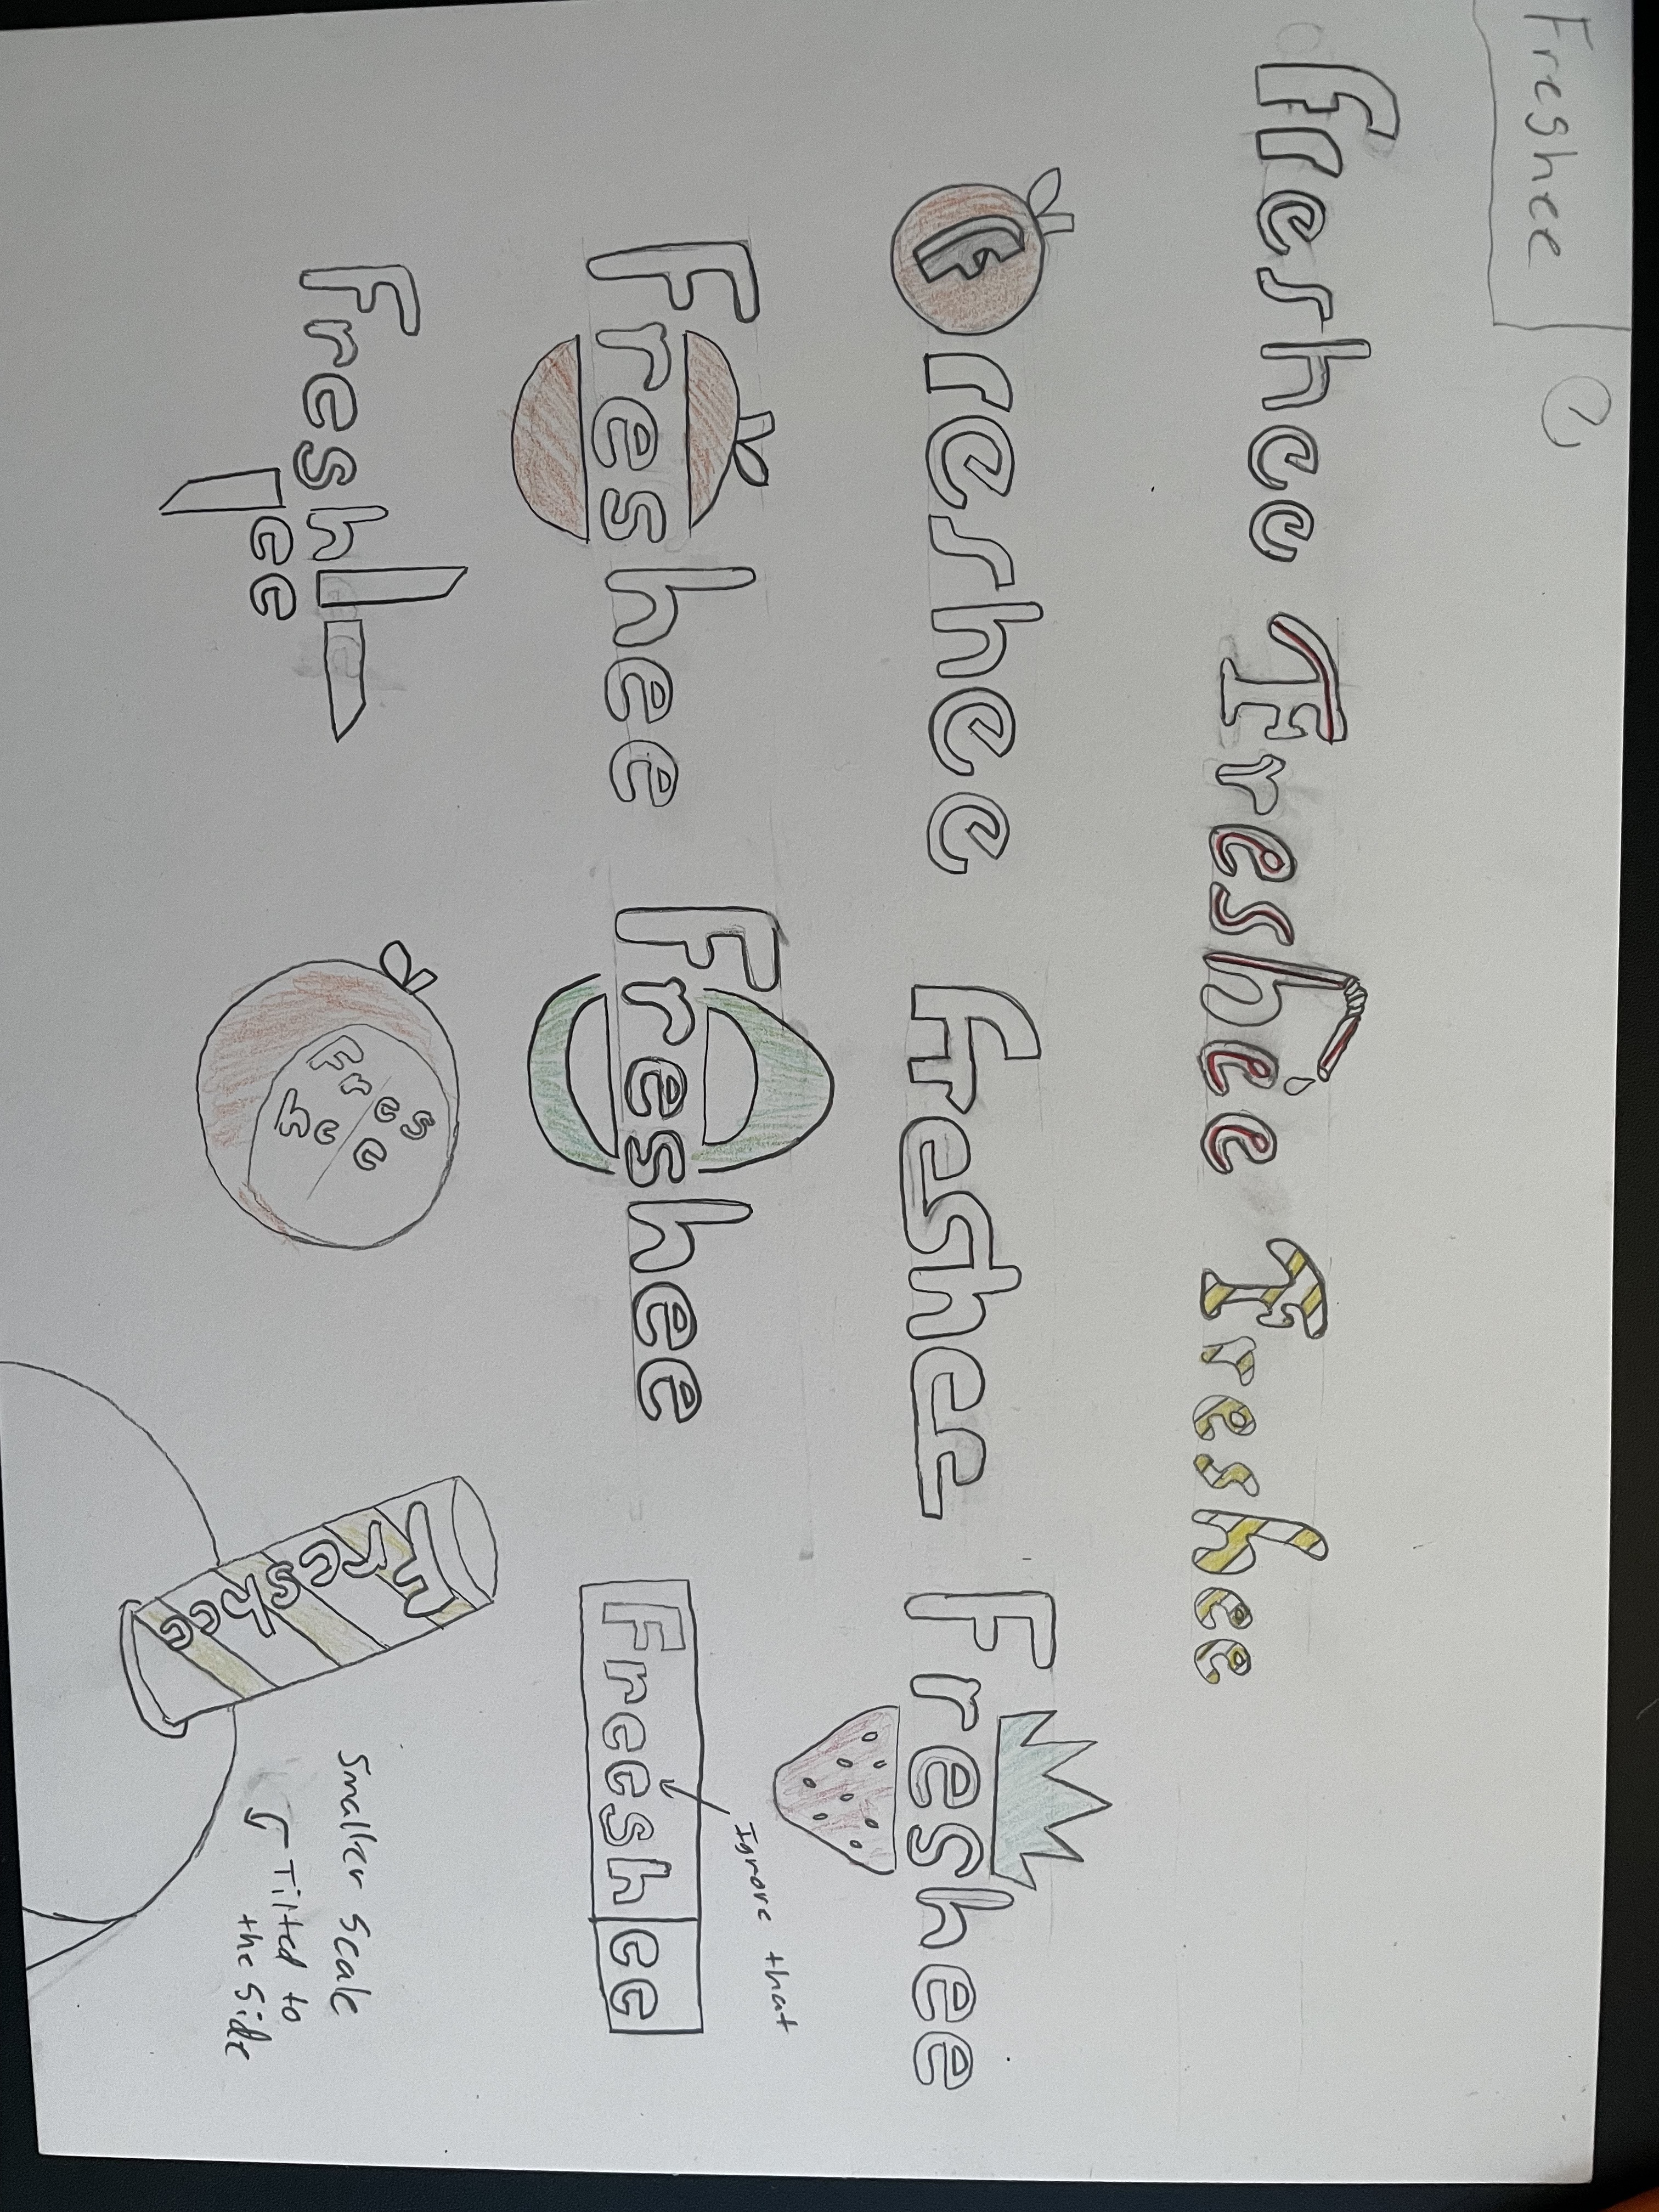 Freshee
1
Freshee Freshee Freshee
Freshee Freshee Freshee
Freshee Freshee Freeshee
Ignore that
Fresh
ee
Fres
hee
Freshee
Smaller scale
Tilted to
the side